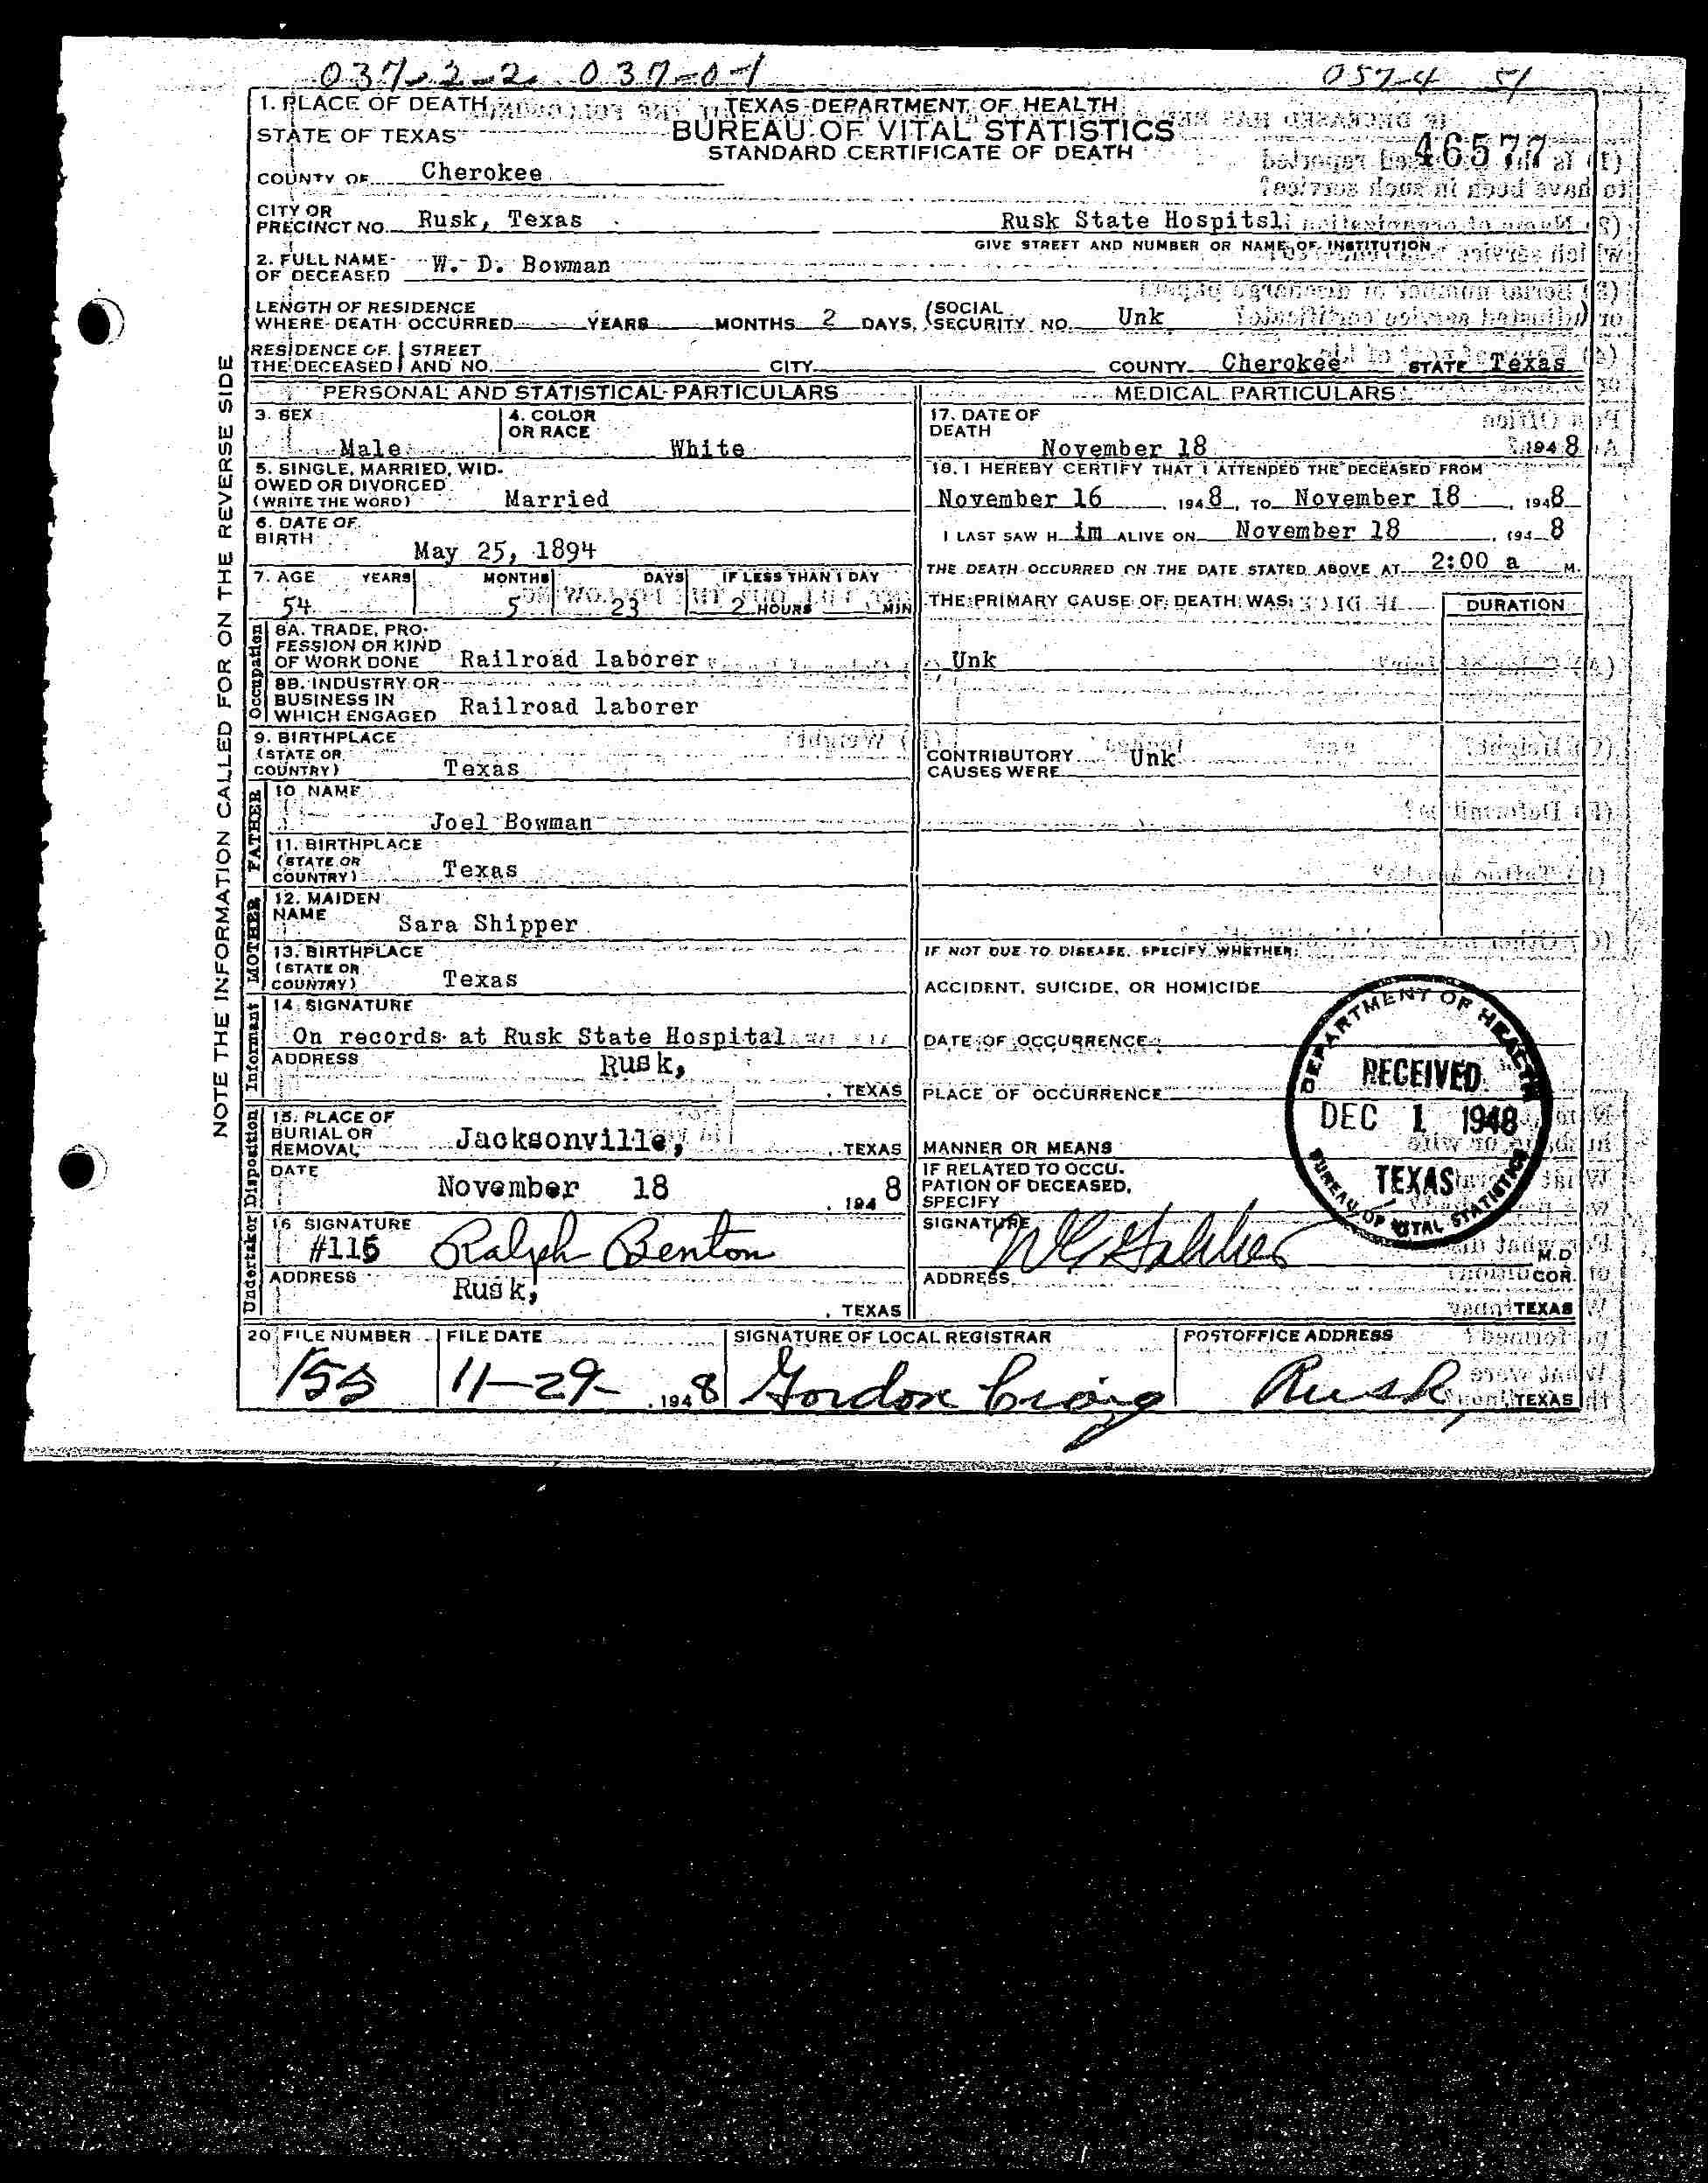 037-2-2 037-0-1 057-4 51
1. PLACE OF DEATH
TEXAS DEPARTMENT OF HEALTH
STATE OF TEXAS
BUREAU OF VITAL STATISTICS
STANDARD CERTIFICATE OF DEATH
46577
COUNTY OF Cherokee
CITY OR
PRECINCT NO. Rusk, Texas Rusk State Hospitsl
GIVE STREET AND NUMBER OR NAME OF INSTITUTION
2. FULL NAME
OF DECEASED W. D. Bowman
LENGTH OF RESIDENCE
WHERE DEATH OCCURRED YEARS MONTHS 2 DAYS, (SOCIAL SECURITY NO. Unk
RESIDENCE OF THE DECEASED STREET AND NO. CITY COUNTY Cherokee STATE Texas
PERSONAL AND STATISTICAL PARTICULARS
3. SEX Male
4. COLOR OR RACE White
5. SINGLE, MARRIED, WID-
OWED OR DIVORCED
(WRITE THE WORD) Married
6. DATE OF
BIRTH May 25, 1894
7. AGE YEARS MONTHS DAYS IF LESS THAN 1 DAY
54 5 23 2 HOURS MIN
Occupation
8A. TRADE, PRO-
FESSION OR KIND
OF WORK DONE Railroad laborer
8B. INDUSTRY OR
BUSINESS IN
WHICH ENGAGED Railroad laborer
9. BIRTHPLACE
(STATE OR
COUNTRY) Texas
FATHER
10 NAME
Joel Bowman
11. BIRTHPLACE
(STATE OR
COUNTRY) Texas
MOTHER
12. MAIDEN
NAME Sara Shipper
13. BIRTHPLACE
(STATE OR
COUNTRY) Texas
Informant
14. SIGNATURE
On records at Rusk State Hospital
ADDRESS Rusk,
, TEXAS
Disposition
15. PLACE OF
BURIAL OR
REMOVAL Jacksonville, , TEXAS
DATE
November 18 , 194 8
Undertaker
16 SIGNATURE
#115 Ralph Benton
ADDRESS
Rusk,
, TEXAS
MEDICAL PARTICULARS
17. DATE OF
DEATH November 18 1948
18. I HEREBY CERTIFY THAT I ATTENDED THE DECEASED FROM
November 16 , 1948, TO November 18 , 1948
I LAST SAW H im ALIVE ON November 18 , 194 8
THE DEATH OCCURRED ON THE DATE STATED ABOVE AT 2:00 a M.
THE PRIMARY CAUSE OF DEATH WAS: DURATION
Unk
CONTRIBUTORY
CAUSES WERE Unk
IF NOT DUE TO DISEASE, SPECIFY WHETHER:
ACCIDENT, SUICIDE, OR HOMICIDE
DATE OF OCCURRENCE
PLACE OF OCCURRENCE
MANNER OR MEANS
IF RELATED TO OCCU-
PATION OF DECEASED,
SPECIFY
SIGNATURE
M.D
ADDRESS COR.
TEXAS
DEPARTMENT OF HEALTH
RECEIVED
DEC 1 1948
TEXAS
BUREAU OF VITAL STATISTICS
20 FILE NUMBER FILE DATE SIGNATURE OF LOCAL REGISTRAR POSTOFFICE ADDRESS
155 11-29- , 1948 Gordon Craig Rusk, TEXAS
NOTE THE INFORMATION CALLED FOR ON THE REVERSE SIDE